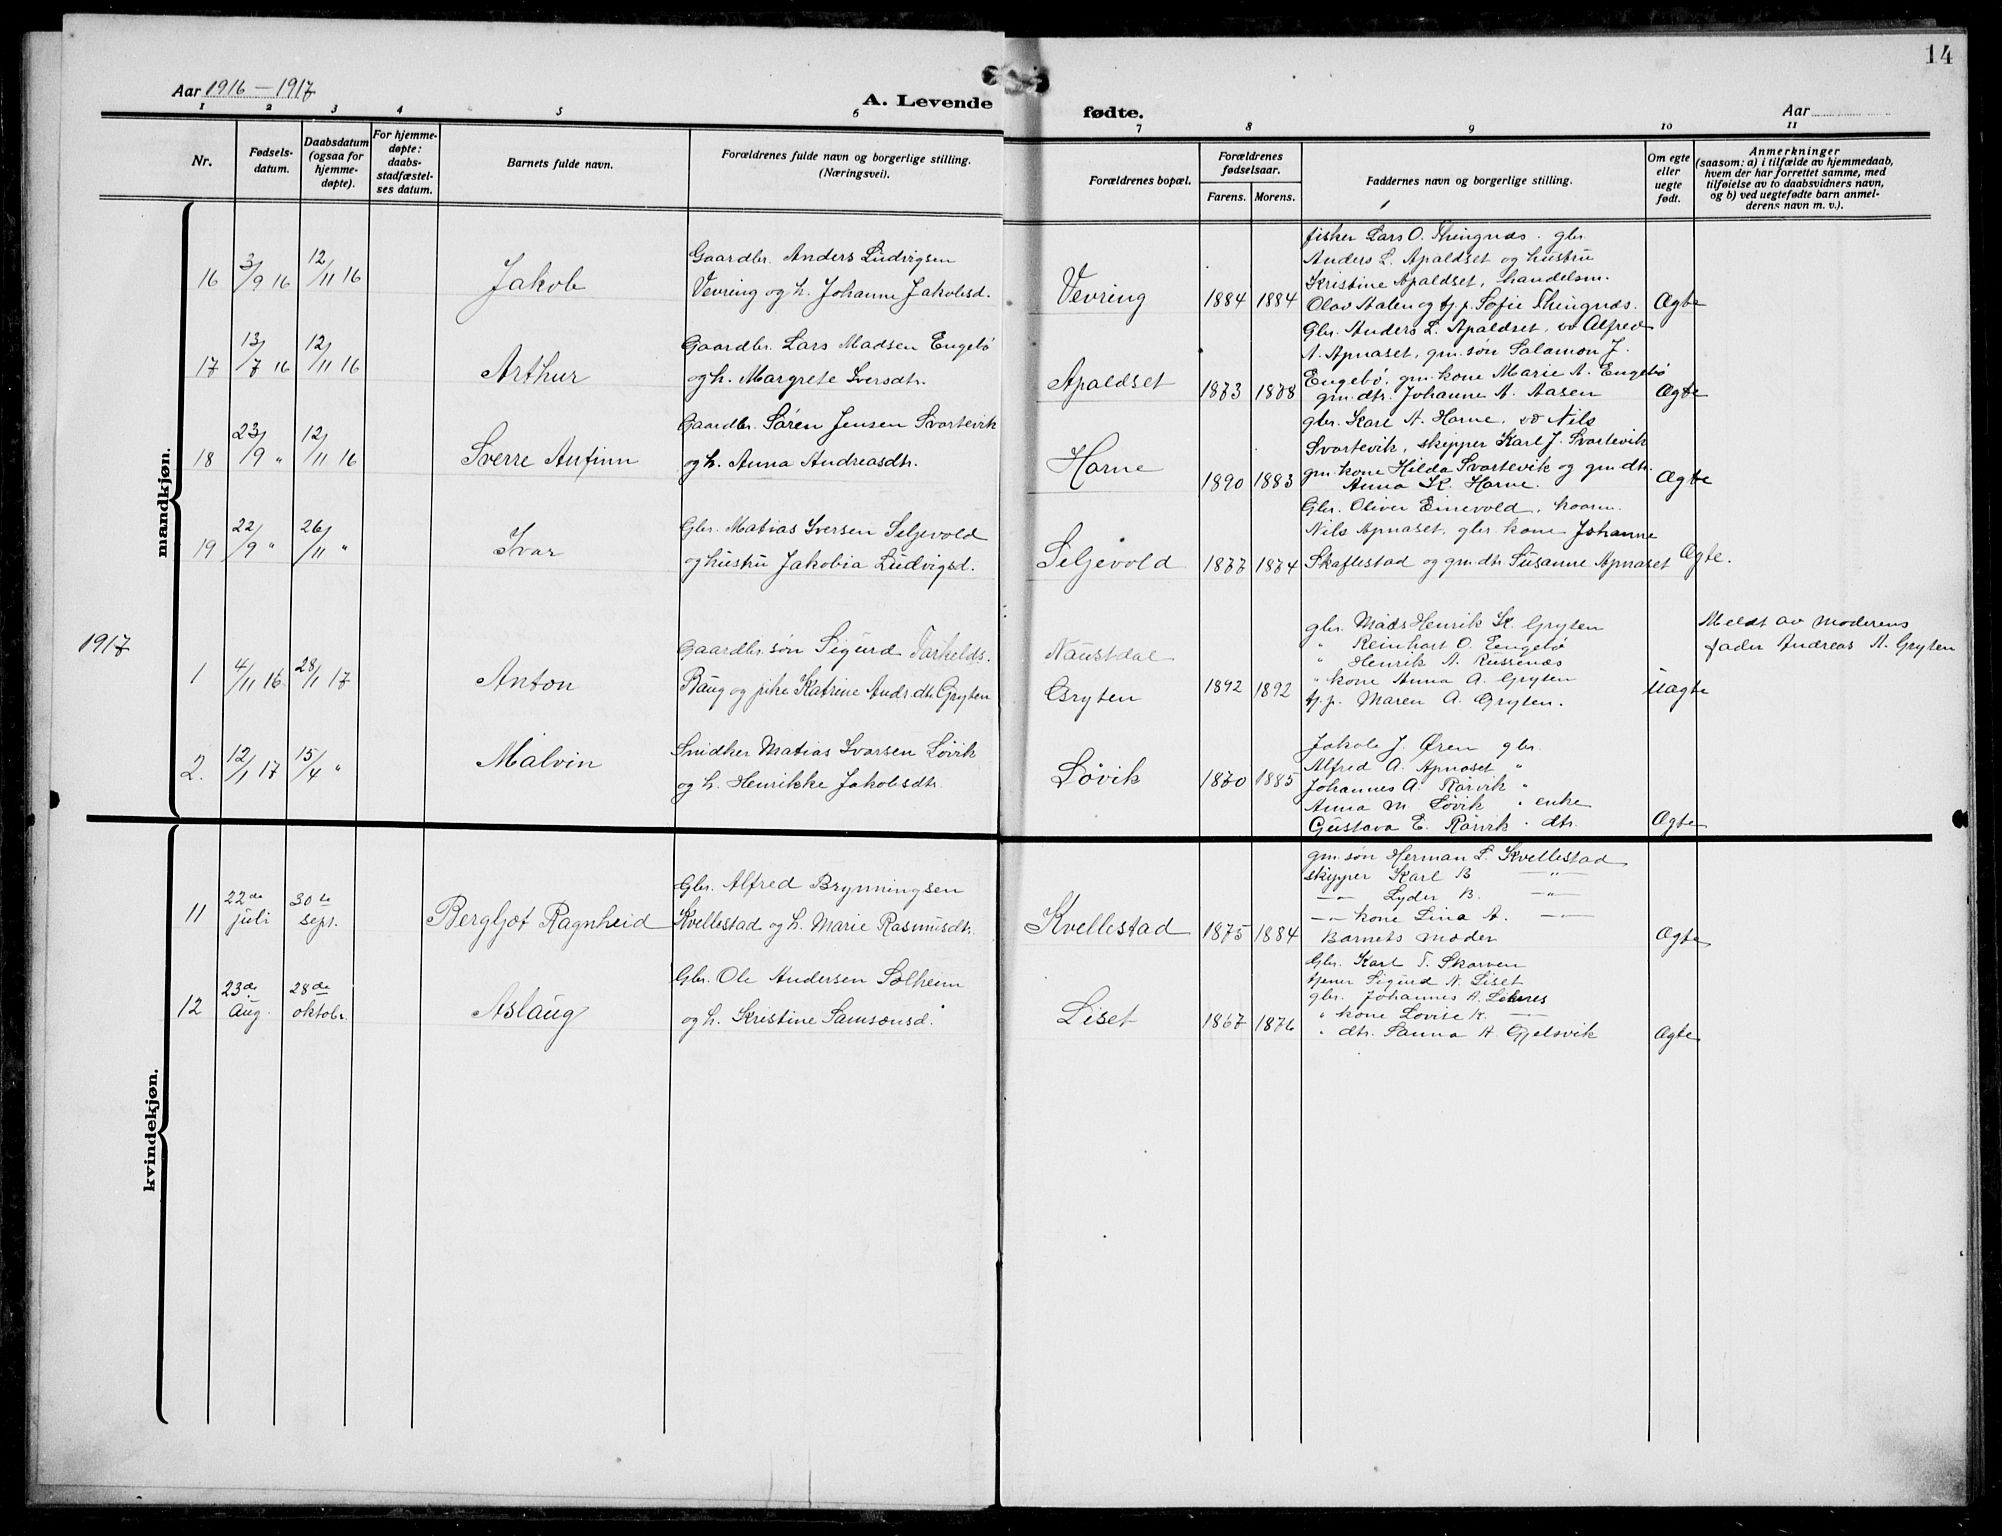 14
Aar 1916 – 1917
A. Levende
fødte.
Aar
1 2 3 4 5 6 7 8 9 10 11
Nr.
Fødsels-
datum.
Daabsdatum
(ogsaa for
hjemme-
døpte).
For hjemme-
døpte:
daabs-
stadfæstel-
ses datum.
Barnets fulde navn.
Forældrenes fulde navn og borgerlige stilling.
(Næringsvei).
Forældrenes bopæl.
Forældrenes
fødselsaar.
Farens. Morens.
Faddernes navn og borgerlige stilling.
Om egte
eller
uegte
født.
Anmerkninger
(saasom: a) i tilfælde av hjemmedaab,
hvem der har forrettet samme, med
tilføielse av to daabsvidners navn,
og b) ved uegtefødte barn anmel-
derens navn m. v.).
mandkjøn.
16 3/9 16 12/11 16 Jakob
Gaardbr. Anders Ludvigsen
Vevring og h. Johanne Jakobsd.
Vevring 1884 1884
fisker Lars O. Thingnæs. gbr.
Anders L. Apaldset og hustru
Kristine Apaldset, handelsm.
Olav Aalen og tj. p. Sofie Thingnæs.
Ægte
17 13/7 16 12/11 16 Arthur
Gaardbr. Lars Madsen Engebø
og h. Margrete Iversdtr.
Apaldset 1873 1878
Gbr. Anders L. Apaldset, Alfred
A. Apnaset, gm. søn Salamon J.
Engebø, gm. kone Marie A. Engebø
gm. dtr. Johanne A. Aasen
Ægte
18 23/9 " 12/11 16 Sverre Anfinn
Gaardbr. Søren Jensen Svortevik
og h. Anna Andreasdtr.
Horne 1890 1883
gbr. Karl A. Horne, Nils
Svortevik, skipper Karl J. Svortevik
gm. kone Hilda Svortevik og gm. dtr.
Anna K. Horne.
Ægte
19 22/9 " 26/11 " Ivar
Gbr. Matias Iversen Seljevold
og hustru Jakobia Ludvigsd.
Seljevold 1877 1874
Gbr. Oliver Einevold,
Nils Apnaset, gbr. kone Johanne
Skaflestad og gm. dtr. Susanne Apnaset
Ægte.
1917
1 4/11 16. 28/1 17 Anton
Gaardbr. søn Sigurd Tarkelds.
Baug og pike Katrine Andr. dtr. Gryten
Naustdal
Gryten 1892 1892
gbr. Mads Henrik K. Gryten
" Reinhart O. Engebø
" Henrik A. Russenæs
" kone Anna A. Gryten
tj. p. Maren A. Gryten.
Uægte
Meldt av moderens
fader Andreas A. Gryten
2. 12/1 17 15/4 " Malvin
Snidker Matias Ivarsen Løvik
og h. Henrikke Jakobsdtr.
Løvik 1870 1885
Jakob J. Øren gbr.
Alfred A. Apnaset "
Johannes A. Rørvik "
Anna M. Løvik " enke
Gustava E. Rørvik " dtr.
Ægte
kvindekjøn.
11 22de juli 30te sept. Bergljot Ragnheid
Gbr. Alfred Brynningsen
Kvellestad og h. Marie Rasmusdtr.
Kvellestad 1875 1884
gm. søn Herman L. Kvellestad
skipper Karl B —"—
—"— Lyder B. —"—
—"— kone Lina A. —"—
Barnets moder
Ægte
12 23de Aug. 28de oktobr. Aslaug
Gbr. Ole Andersen Solheim
og h. Kristine Samsonsd.
Liset 1867 1876
Gbr. Karl T. Skorven
tjener Sigurd N. Liset
gbr. Johannes A. Leknes
" kone Lovise K. —
" dtr. Sanna A. Gjelsvik
Ægte